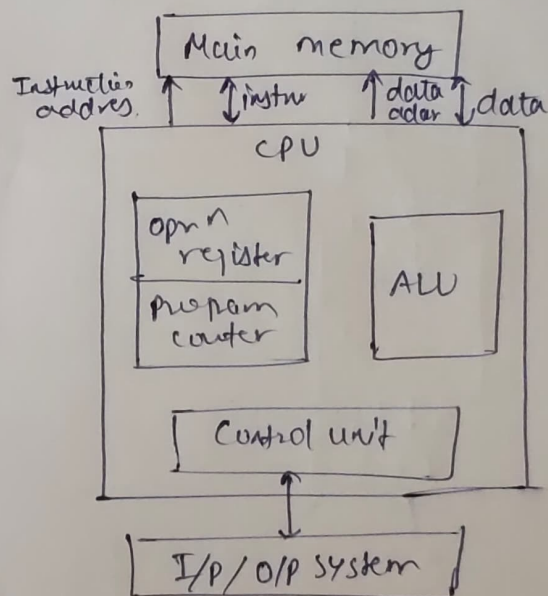 Main memory
Instruction
addres.
instru
data
adar
data
CPU
oprn n
register
program
counter
ALU
Control unit
I/P / O/P system